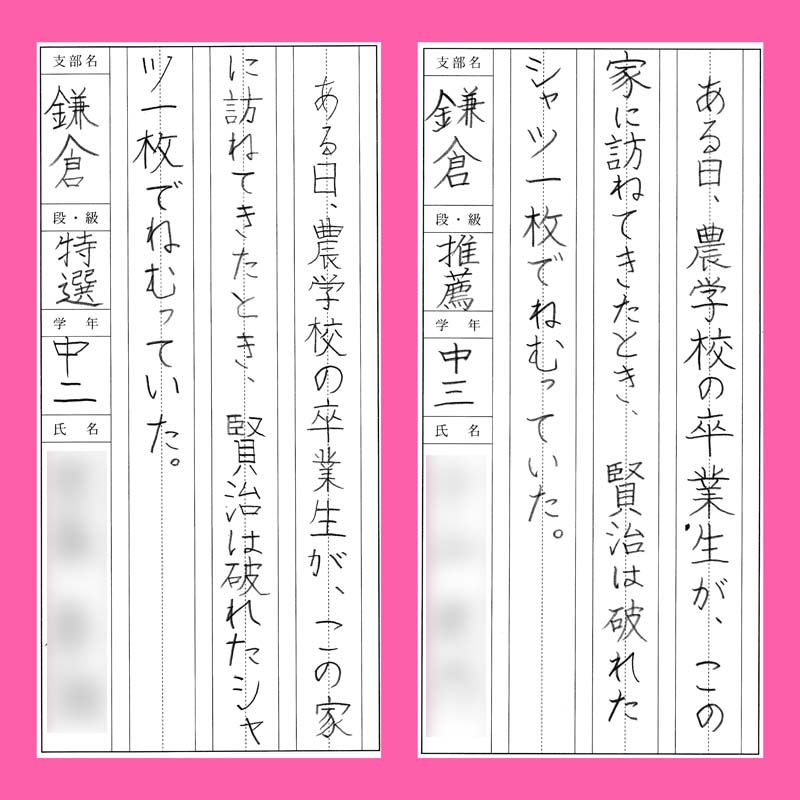 ある日、農学校の卒業生が、この
家に訪ねてきたとき、賢治は破れた
シャツ一枚でねむっていた。
支部名
鎌倉
段・級
推薦
学年
中三
氏名
ある日、農学校の卒業生が、この家
に訪ねてきたとき、賢治は破れたシャ
ツ一枚でねむっていた。
支部名
鎌倉
段・級
特選
学年
中二
氏名